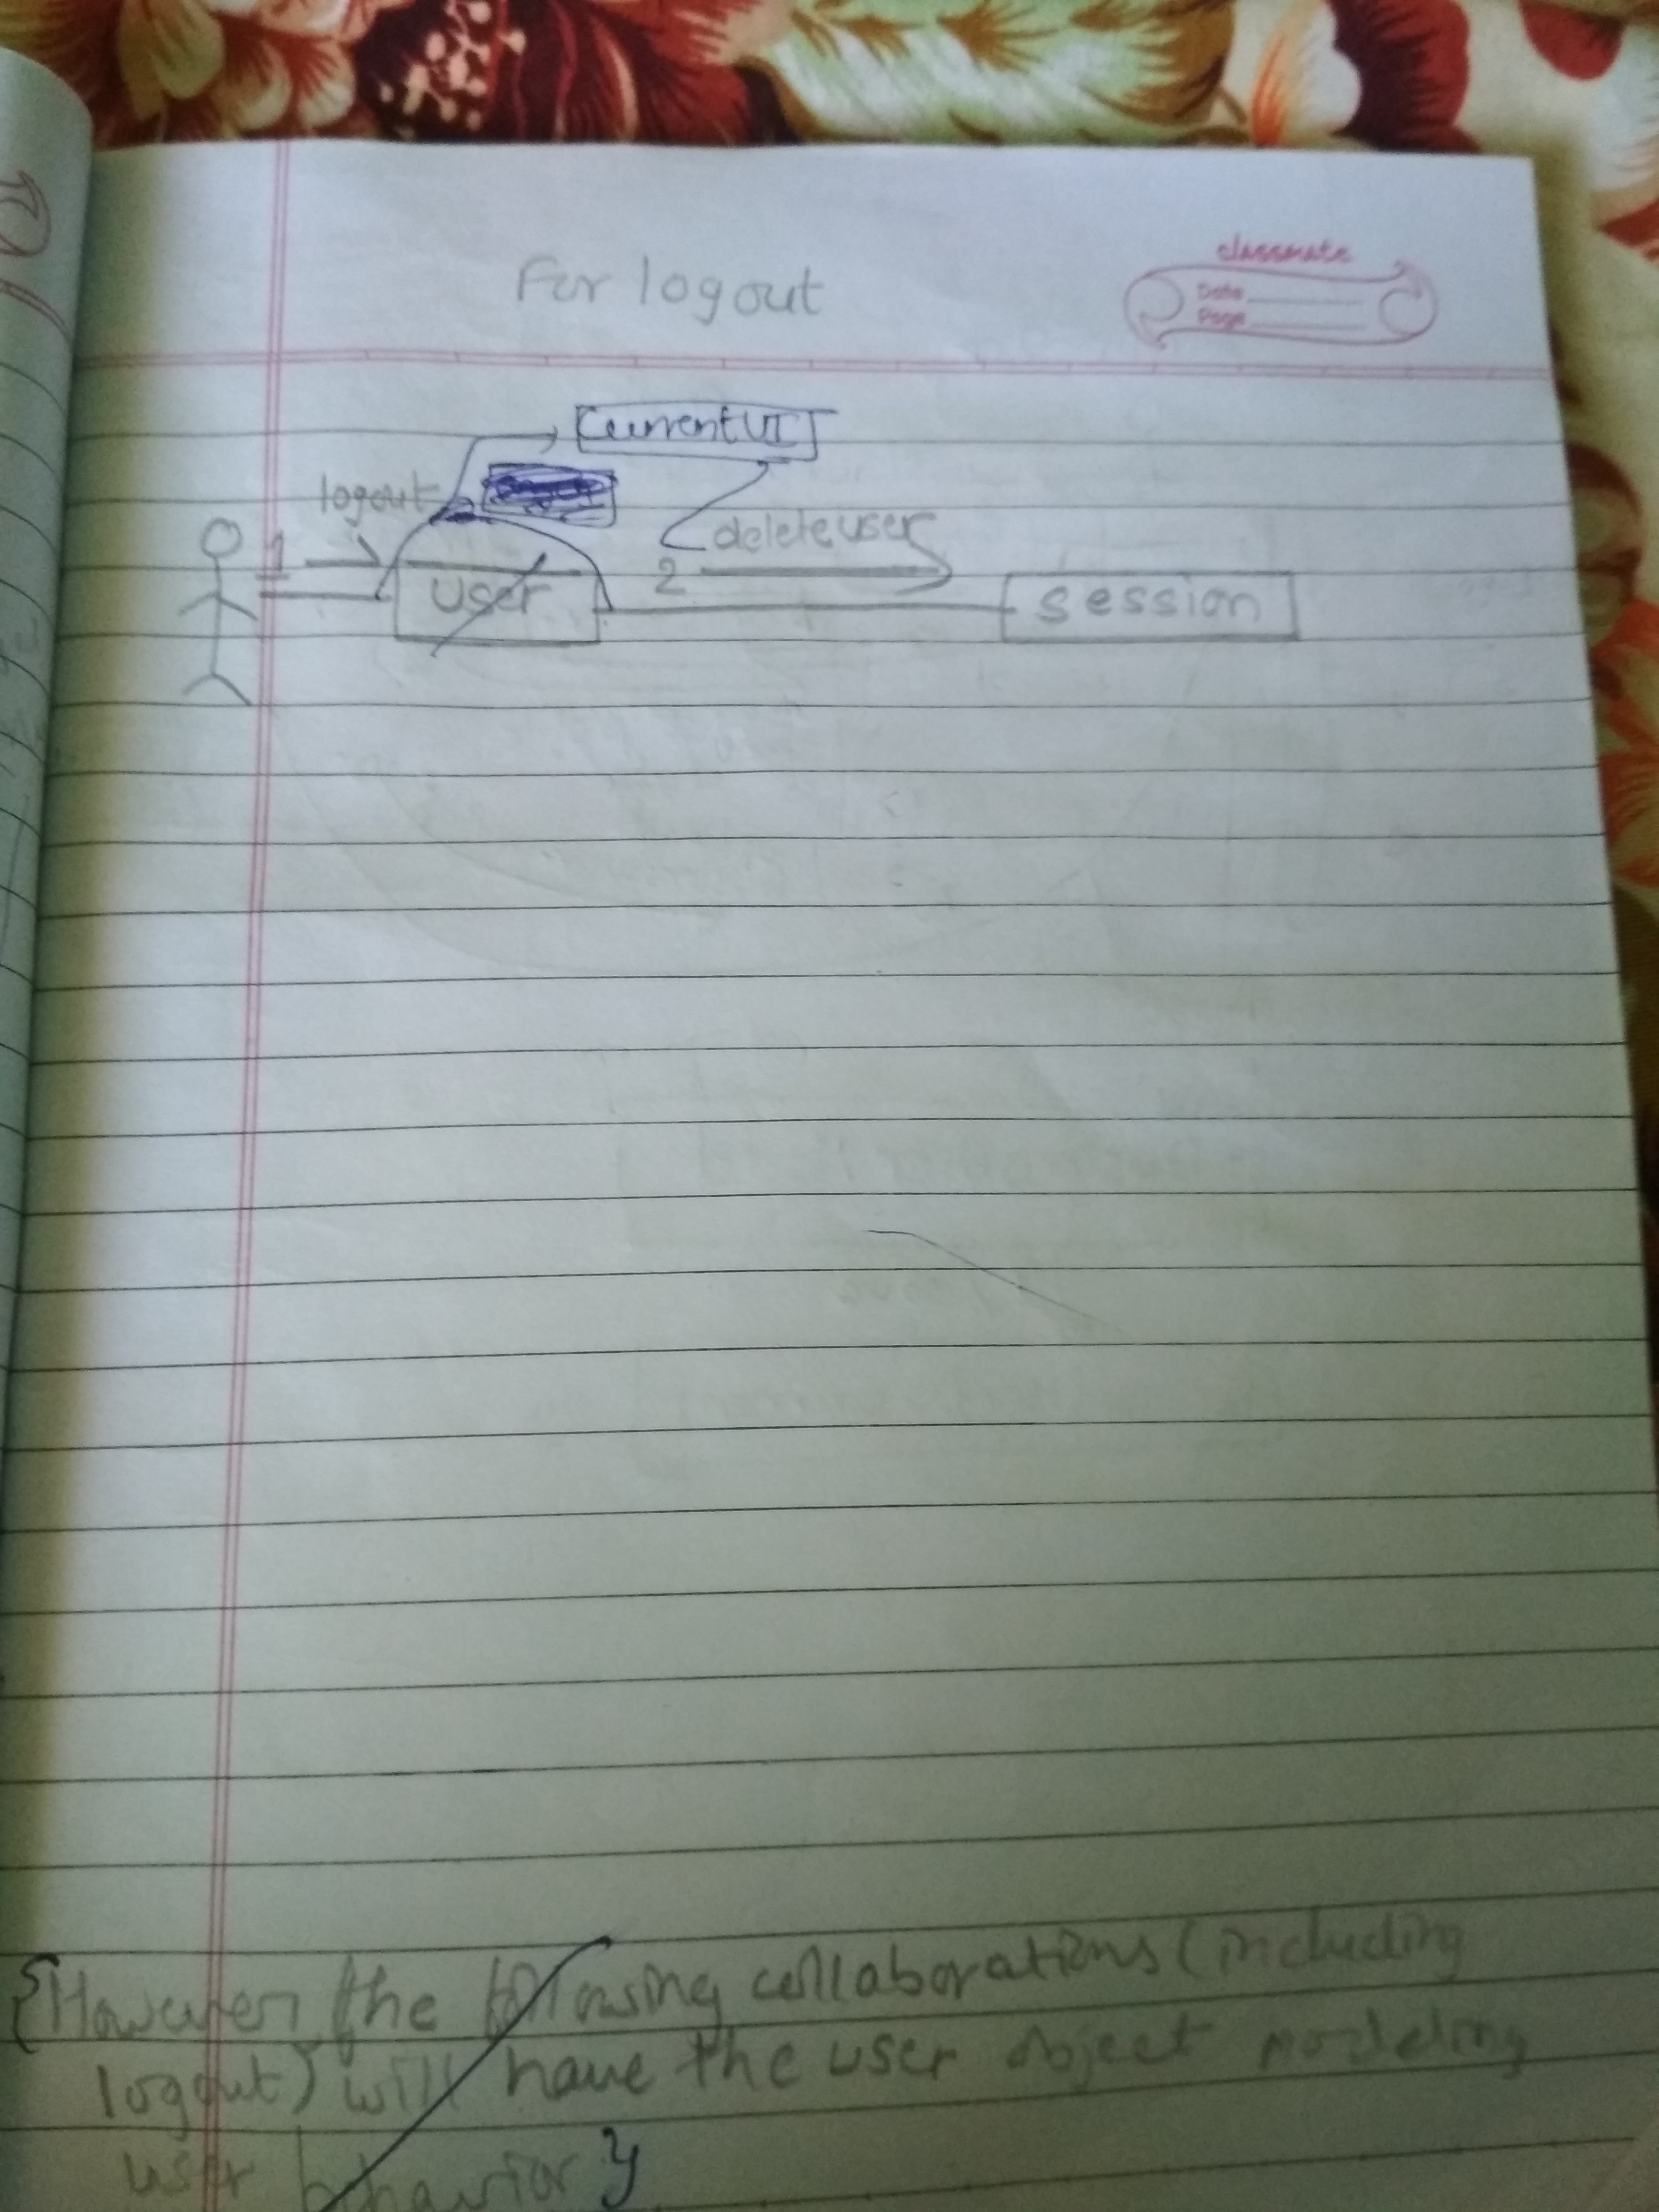 classmate
Date
Page
For logout
CurrentUI
logout
deleteuser
1
2
user
session
{However, the following collaborations (including
logout) will have the user object modeling
user behavior}